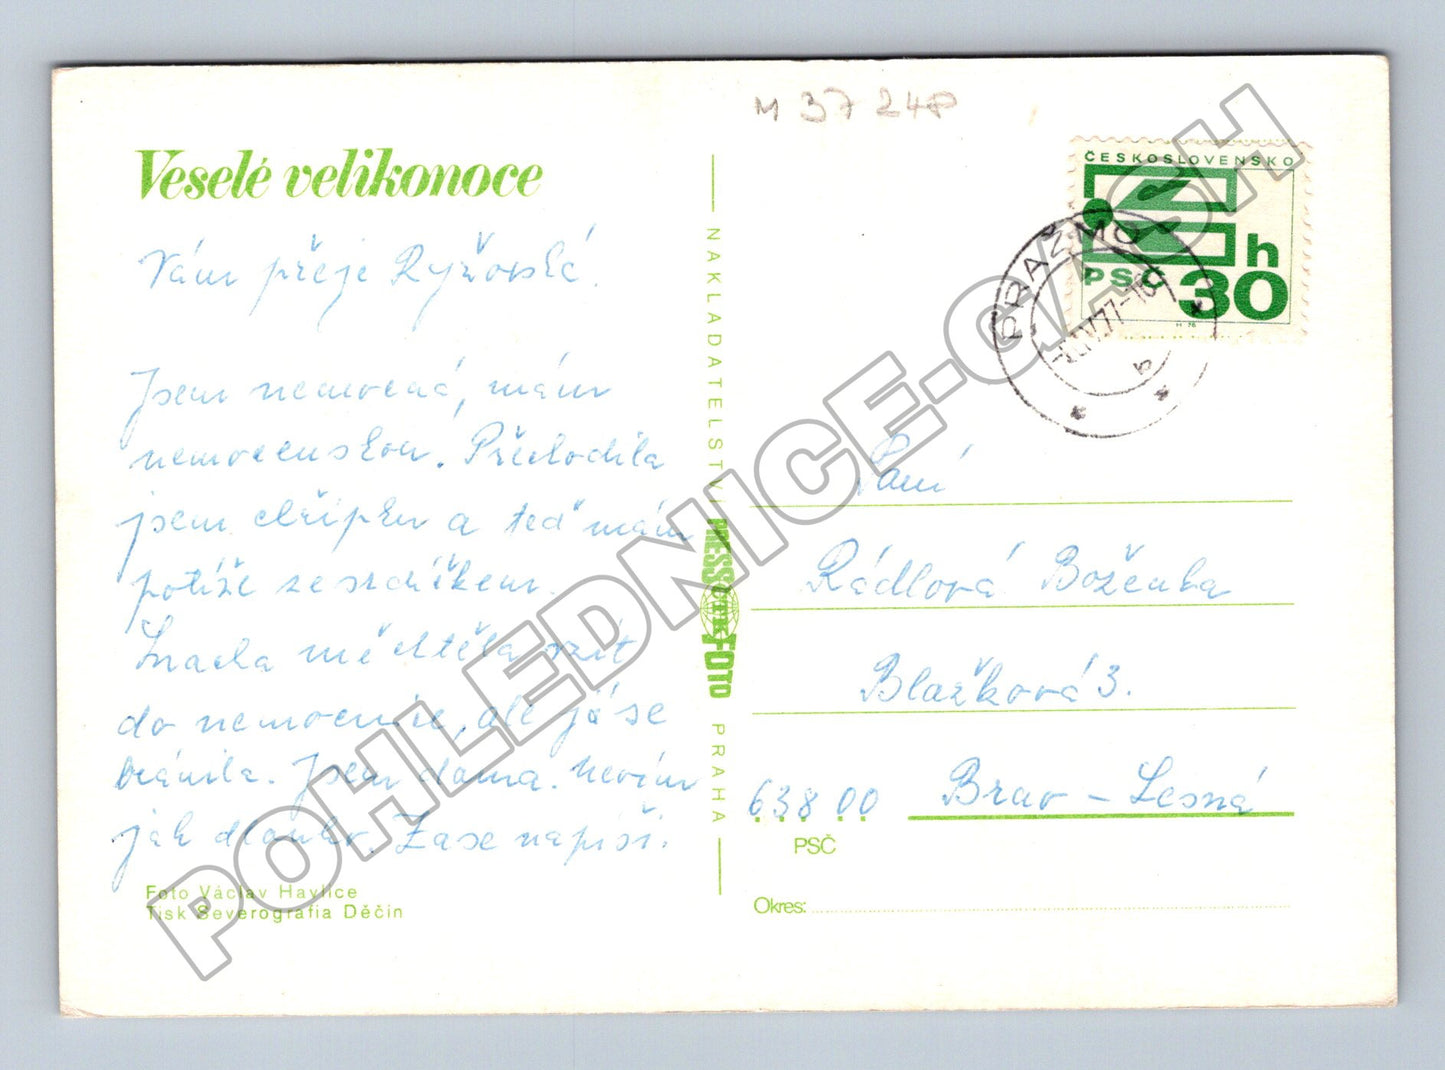 M 37 248
Veselé velikonoce
Vám přeje Ryžovská.
Jsem nemocná, mám
nemocenskou. Přechodila
jsem chřipku a teď mám
potíže se srdíčkem.
mě chtěla vzít
do nemocnice, ale já se
bránila. Jsem doma. Nevím
jak dlouho. Zase napíši.
Foto Václav Havlice
Tisk Severografia Děčín
NAKLADATELSTVÍ
PRESSFOTO
ČTK
PRAHA
ČESKOSLOVENSKO
h
PSČ 30
PRAŽMO
IV.77-16
b
Paní
Rádlová Boženka
Blažková 3.
638 00 Brno - Lesná
PSČ
Okres:
POHLEDNICE-CZ/SH